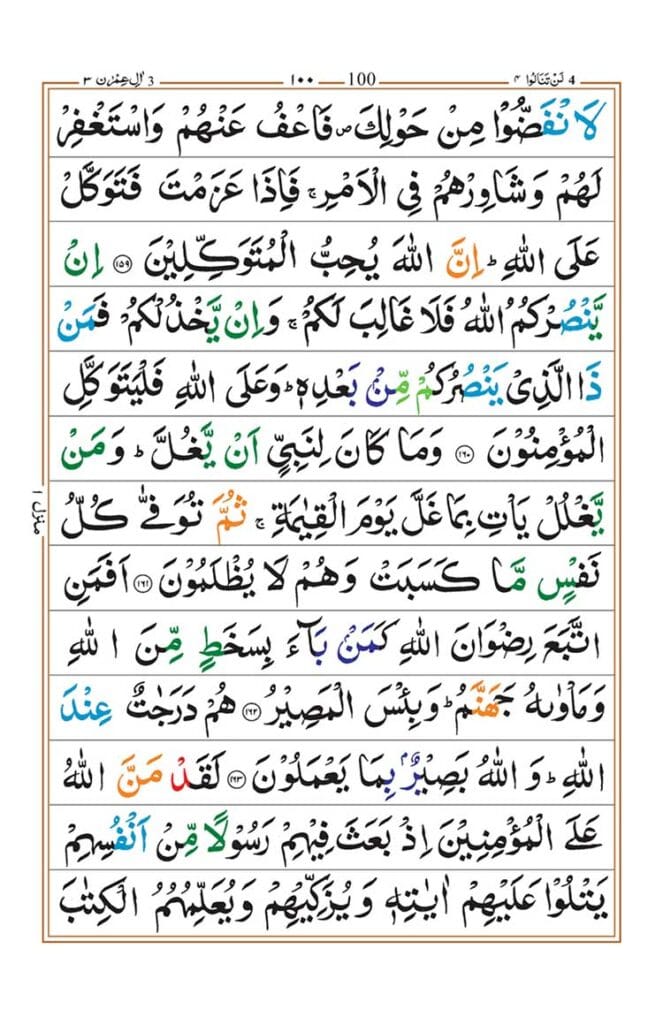 4 لَنْ تَنَالُوا ۴ 100 ۱۰۰ 3 اٰلِ عِمْرٰن ۳
لَا نْفَضُّوْا مِنْ حَوْلِكَ ۪ فَاعْفُ عَنْهُمْ وَاسْتَغْفِرْ
لَهُمْ وَشَاوِرْهُمْ فِي الْاَمْرِ ۚ فَاِذَا عَزَمْتَ فَتَوَكَّلْ
عَلَى اللّٰهِ ؕ اِنَّ اللّٰهَ يُحِبُّ الْمُتَوَكِّلِيْنَ ﴿۱۵۹﴾ اِنْ
يَّنْصُرْكُمُ اللّٰهُ فَلَا غَالِبَ لَكُمْ ۚ وَاِنْ يَّخْذُلْكُمْ فَمَنْ
ذَا الَّذِيْ يَنْصُرُكُمْ مِّنْۢ بَعْدِهٖ ؕ وَعَلَى اللّٰهِ فَلْيَتَوَكَّلِ
الْمُؤْمِنُوْنَ ﴿۱۶۰﴾ وَمَا كَانَ لِنَبِيٍّ اَنْ يَّغُلَّ ؕ وَمَنْ
يَّغْلُلْ يَاْتِ بِمَا غَلَّ يَوْمَ الْقِيٰمَةِ ۚ ثُمَّ تُوَفّٰى كُلُّ
نَفْسٍ مَّا كَسَبَتْ وَهُمْ لَا يُظْلَمُوْنَ ﴿۱۶۱﴾ اَفَمَنِ
اتَّبَعَ رِضْوَانَ اللّٰهِ كَمَنْۢ بَآءَ بِسَخَطٍ مِّنَ اللّٰهِ
وَمَاْوٰىهُ جَهَنَّمُ ؕ وَبِئْسَ الْمَصِيْرُ ﴿۱۶۲﴾ هُمْ دَرَجٰتٌ عِنْدَ
اللّٰهِ ؕ وَاللّٰهُ بَصِيْرٌۢ بِمَا يَعْمَلُوْنَ ﴿۱۶۳﴾ لَقَدْ مَنَّ اللّٰهُ
عَلَى الْمُؤْمِنِيْنَ اِذْ بَعَثَ فِيْهِمْ رَسُوْلًا مِّنْ اَنْفُسِهِمْ
يَتْلُوْا عَلَيْهِمْ اٰيٰتِهٖ وَيُزَكِّيْهِمْ وَيُعَلِّمُهُمُ الْكِتٰبَ
منزل ۱